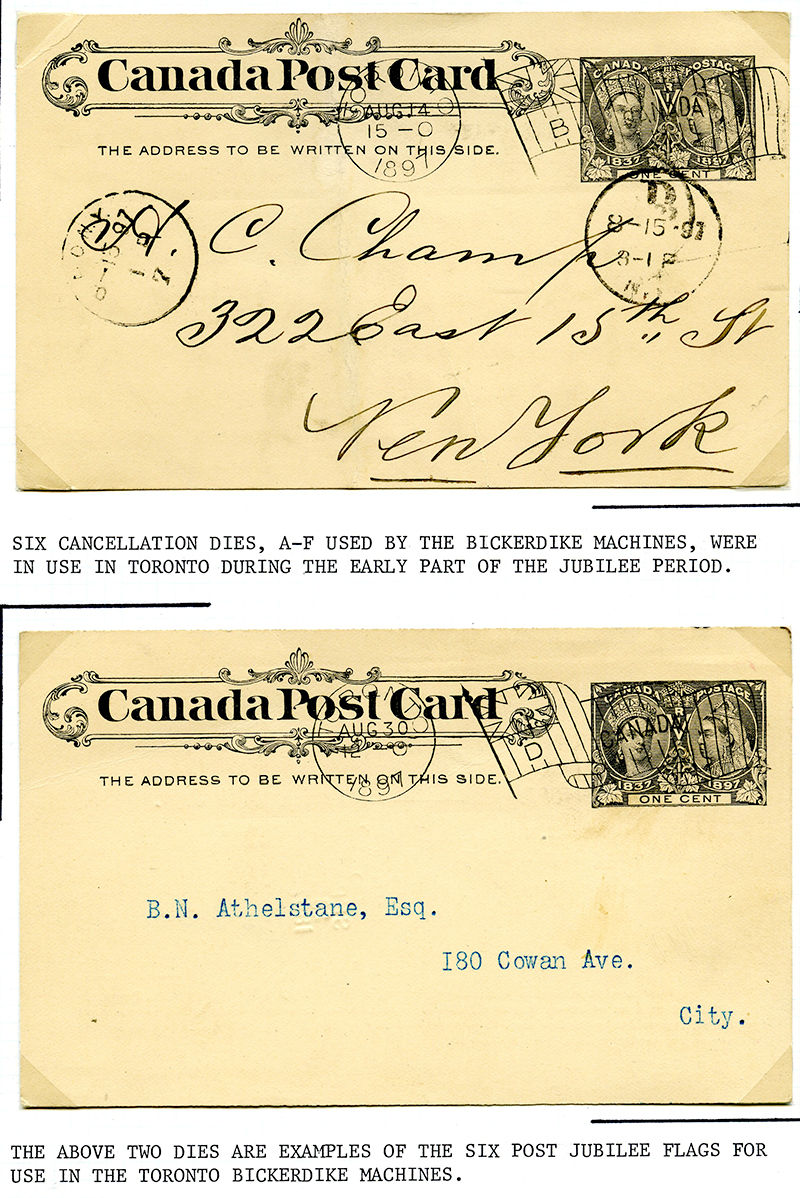 Canada Post Card
THE ADDRESS TO BE WRITTEN ON THIS SIDE.
AUG 14
15-0
1897
B
CANADA
CANADA POSTAGE
1837 1897
ONE CENT
B
8-15-97
3-1 P
N.Y.
C. Champ
322 East 15th St
New York
SIX CANCELLATION DIES, A-F USED BY THE BICKERDIKE MACHINES, WERE
IN USE IN TORONTO DURING THE EARLY PART OF THE JUBILEE PERIOD.
Canada Post Card
THE ADDRESS TO BE WRITTEN ON THIS SIDE.
AUG 30
1897
D
CANADA
CANADA POSTAGE
1837 1897
ONE CENT
B.N. Athelstane, Esq.
180 Cowan Ave.
City.
THE ABOVE TWO DIES ARE EXAMPLES OF THE SIX POST JUBILEE FLAGS FOR
USE IN THE TORONTO BICKERDIKE MACHINES.